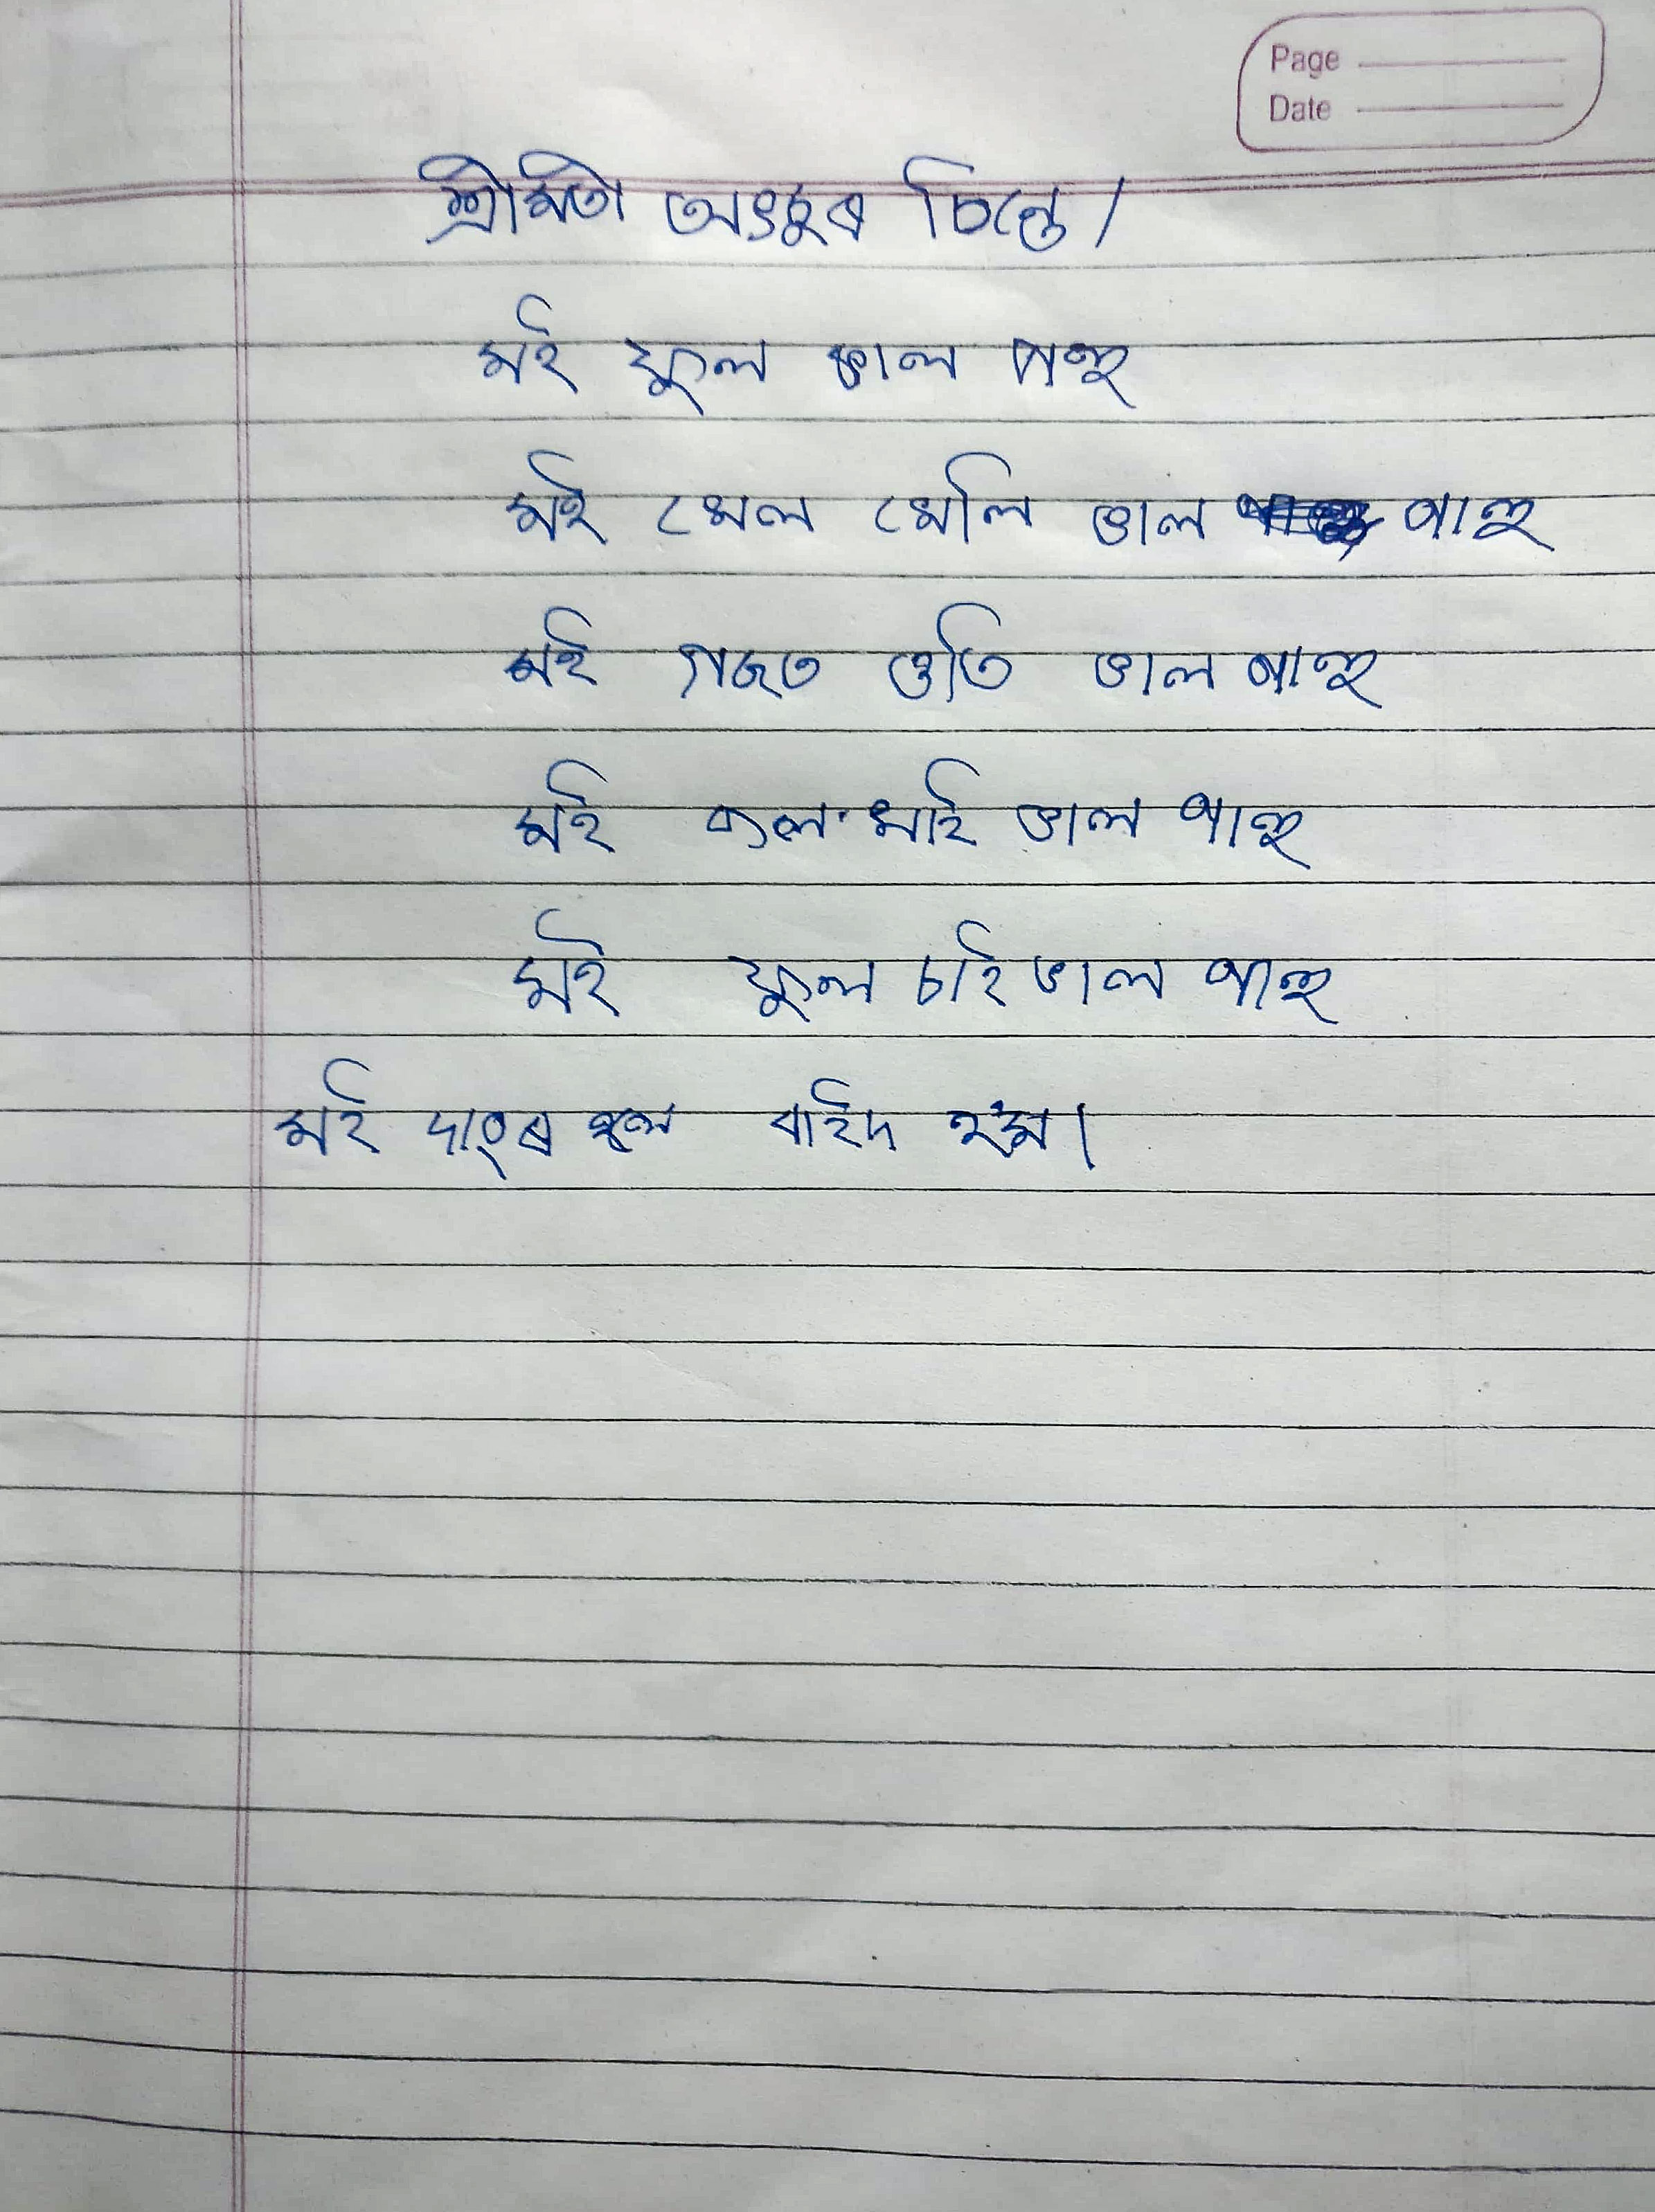 Page
Date
শ্ৰীমতী অংচুৰ চিন্তে।
মই ফুল ভাল পহু
মই খেল খেলি ভাল পাহু
মই গজত উতি ভাল পাহু
মই কল খাই ভাল পাহু
মই ফুল চাই ভাল পাহু
মই দাঙৰ হল বাইদ